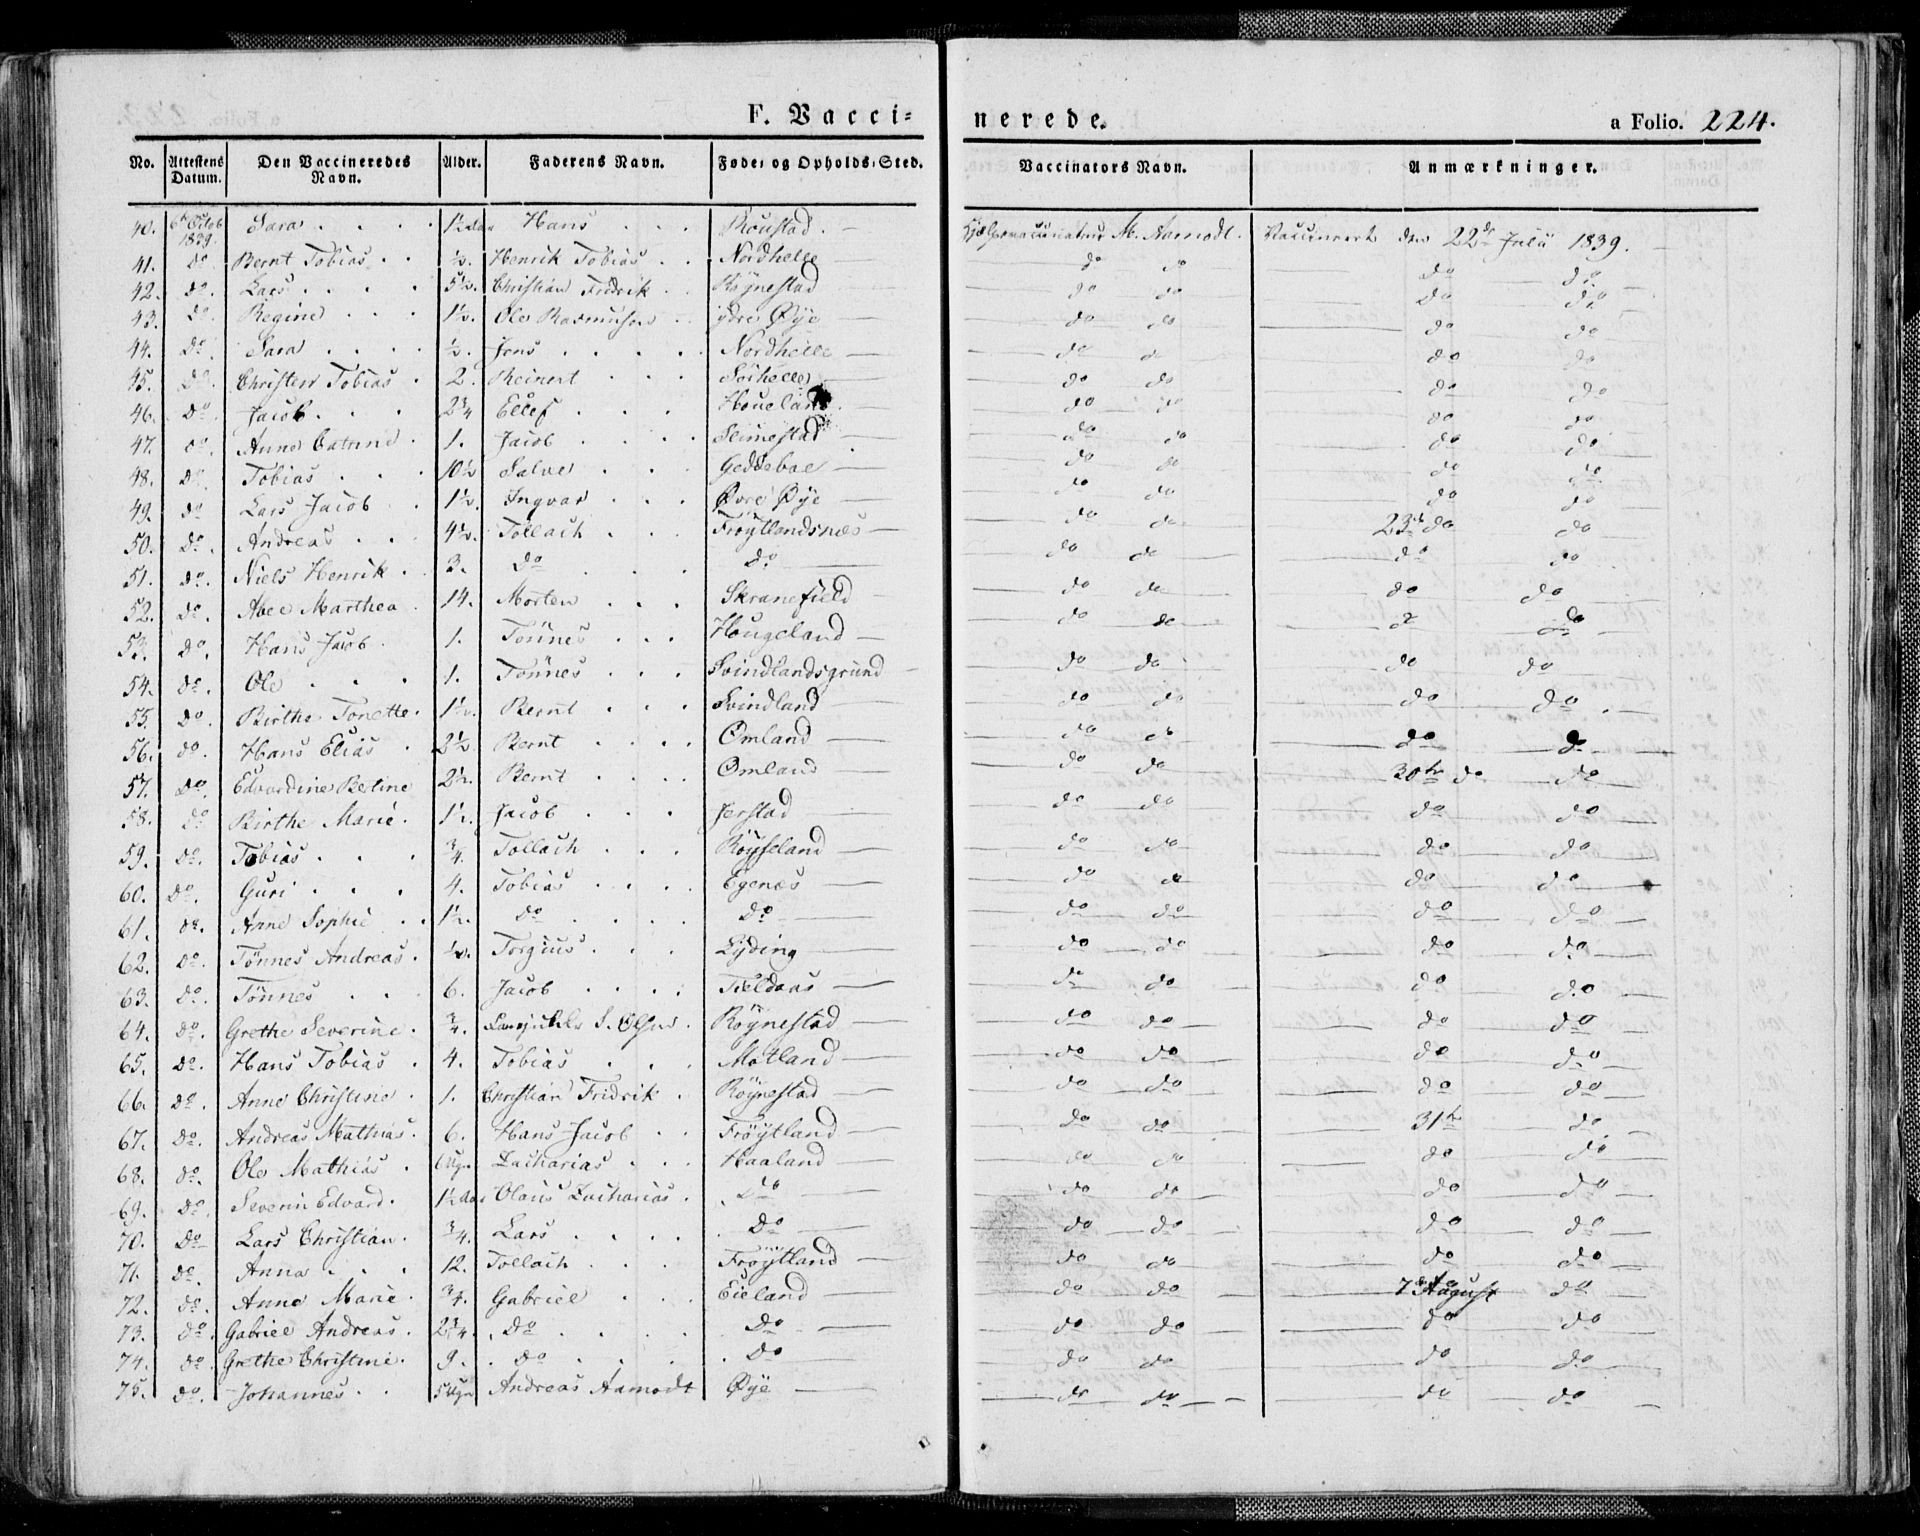 F. Vacci= nerede. a Folio. 224.
No. | Attestens Datum. | Den Vaccineredes Navn. | Alder. | Faderens Navn. | Føde- og Opholds-Sted. | Vaccinators Navn. | Anmærkninger.
40. 6te Octob 1839. Sara . . . . 1½ Aar Hans . . . Röüstad. — Hjelpevaccinateur M. Aamodt. Vaccineert den 22de Julü 1839.
41. Do Bernt Tobias . . ½. Henrik Tobias . . Nordhelle — do do do do
42. Do. Lars . . . . 5½. Christian Fridrik . . Röÿnestad do do do do
43. Do. Regine . . . 1½. Ole Rasmusen . . ydre Øÿe — do do do do
44. Do. Sara . . . . ½. Jens . . . . . Nordhelle — do do do do
45. Do. Christen Tobias . 2. Reinert . . . Sörhelle — do do do do
46. Do. Jacob . . . 2¾ Ellef . . . Houeland. do do do do
47. Do. Anne Catrine . 1. Jacob . . . . Seimestad — do do do do
48. Do Tobias . . . 10½ Salve . . . Geddebae — do do do do
49. do Lars Jacob . 1½. Ingvar . . . Øvre Øÿe — do do do do
50. Do. Andreas . . . 4½. Tollach . . . Fröÿtlandsnæs — do do 23de do do
51. Do. Niels Henrik . 3. Do . . . Do — do do do do
52. Do. Abel Marthea . 14. Morten . . . Skranefield — do do do do
53. Do. Hans Jacob . 1. Tönnes . . . Hougeland — do do do
54. Do. Ole . . . 1. Tönnes . . . Svindlandsgrund — do do do do
55. Do. Birthe Tonette. 1½. Bernt . . . Svindland — do do do do.
56. Do. Hans Elias . 2½. Bernt . . . . Omland — do do do do
57. Do. Edvardine Bertine 2½. Bernt . . . . Omland — do do 30te do do
58. Do Birthe Marie. 1½. Jacob . . . Jerstad — do do do do
59. Do. Tobias . . . ¾. Tollach . . . Röÿseland — do do do do
60. Do. Guri . . . 4. Tobias . . . . Egenæs — do do do do
61. Do. Anne Sophie . . 1½. Do . . . . Do — do do do do
62. Do. Tönnes Andreas. ½. Torgius . . . Lÿding — do do do do
63. Do. Tönnes . . 6. Jacob . . . . Fieldaas — do do do do
64. Do. Grethe Severine. ¾. S. Olsen. Röÿnestad — do do do do
65. Do. Hans Tobias . 4. Tobias . . . Motland — do do do do
66. Do. Anne Christine . 1. Christian Fridrik . Röÿnestad — do do do do
67. Do. Andreas Mathias. 6. Hans Jacob . . Fröÿtland — do do 31te do
68. Do. Ole Mathias . 6 Ugr Zacharias . . . Haaland — do do do do
69. Do. Severin Edvard. 1½ Aar Olaus Zacharias. Do — do do do do
70. Do Lars Christian. ¾. Lars . . . . Do — do do do do
71. Do. Anna . . . 12. Tollach . . . Fröÿtland — do do do do
72. Do. Anne Marie. ¾. Gabriel . . . Eieland — do do 7de August do
73. Do. Gabriel Andreas. 2¾. Do . . . . Do — do do do do
74. Do Grethe Christine. 9. Do . . . . Do — do do do do
75. Do. Johannes . . 5 Ugr Andreas Aamodt Øÿe — do do do do